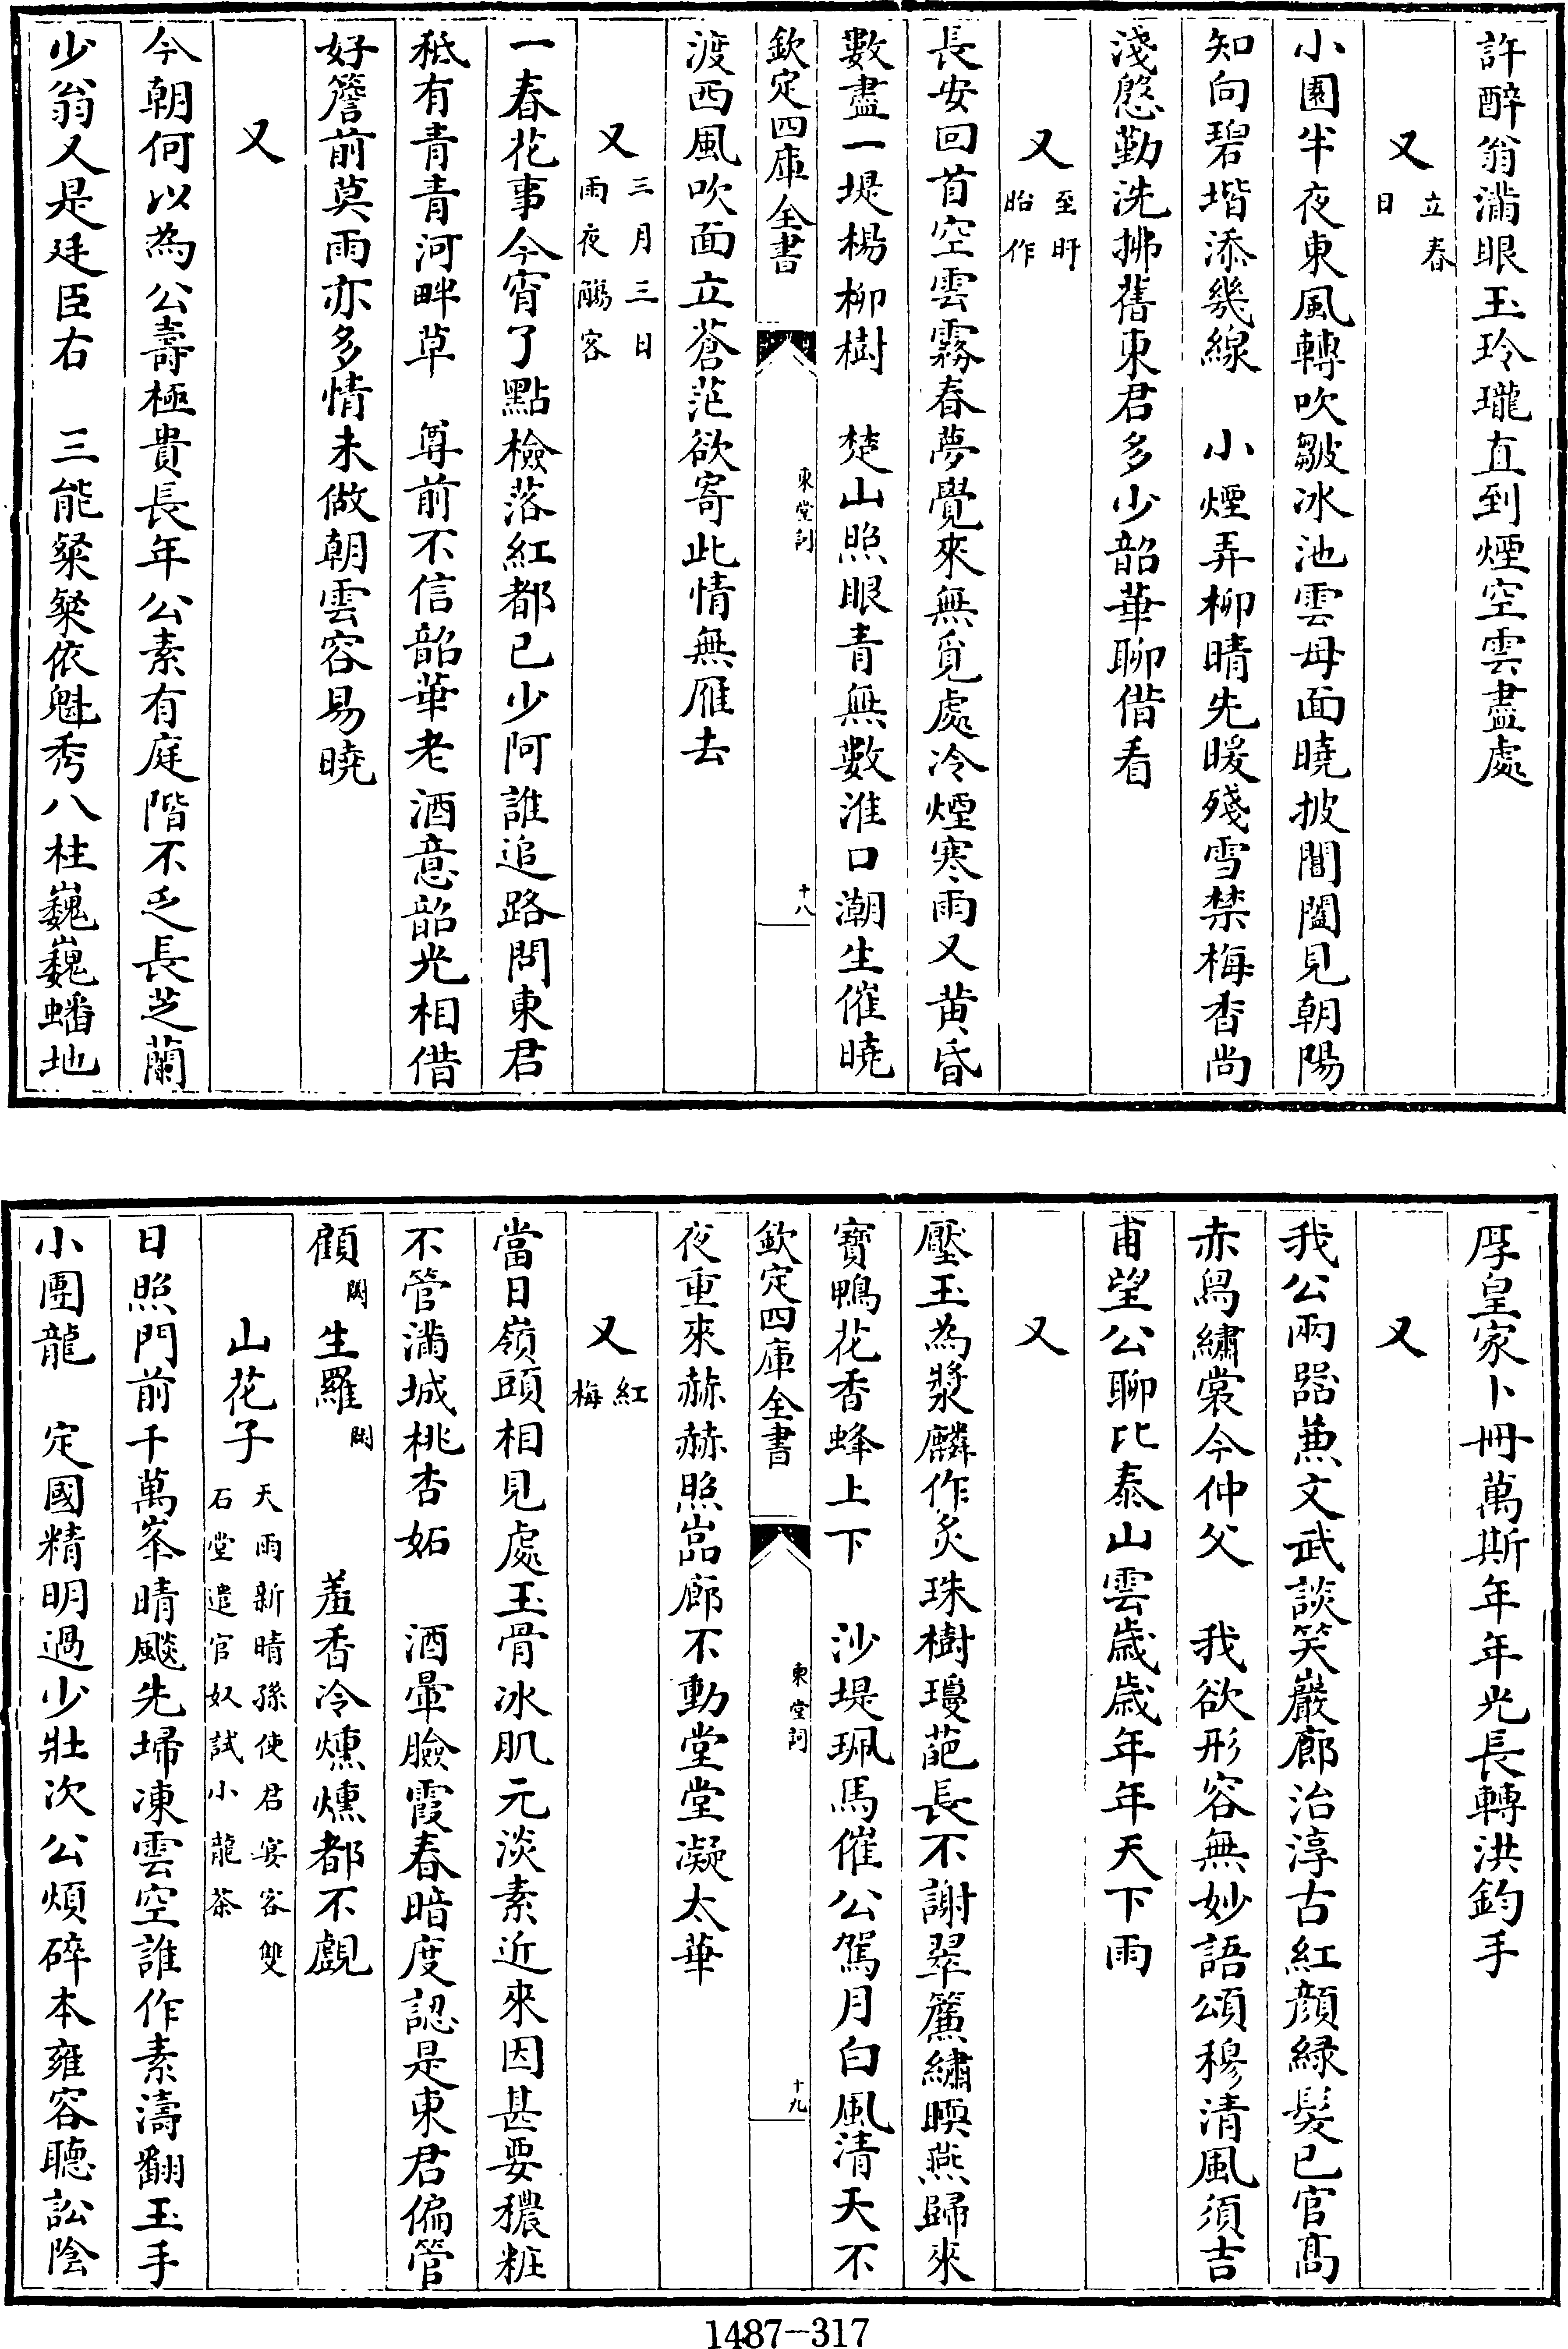 許醉翁滿眼玉玲瓏直到煙空雲盡處
又立春日
小園半夜東風轉吹皺冰池雲母面曉披閶闔見朝陽
知向碧堦添幾線　小煙弄柳晴先暖殘雪禁梅香尚
淺慇勤洗拂舊東君多少韶華聊借看
又至盱眙作
長安回首空雲霧春夢覺來無覓處冷煙寒雨又黃昏
數盡一堤楊柳樹　楚山照眼青無數淮口潮生催曉
欽定四庫全書　東堂詞　十八
渡西風吹面立蒼茫欲寄此情無雁去
又三月三日雨夜觴客
一春花事今宵了點檢落紅都已少阿誰追路問東君
秪有青青河畔草　尊前不信韶華老酒意韶光相借
好簷前莫雨亦多情未做朝雲容易曉
又
今朝何以為公壽極貴長年公素有庭階不乏長芝蘭
少翁又是廷臣右　三能粲粲依魁秀八柱巍巍蟠地
厚皇家卜冊萬斯年年光長轉洪鈞手
又
我公兩器蕭文武談笑巖廊治淳古紅顏綠髮已官高
赤舄繡裳今仲父　我欲形容無妙語頌穆清風須吉
甫望公聊比泰山雲歲歲年年天下雨
又
壓玉為漿麟作炙珠樹瓊葩長不謝翠簾繡暎燕歸來
寶鴨花香蜂上下　沙堤珮馬催公駕月白風清天不
欽定四庫全書　東堂詞　十九
夜重來赫赫照巖廊不動堂堂凝太華
又紅梅
當日嶺頭相見處玉骨冰肌元淡素近來因甚要穠粧
不管滿城桃杏妬　酒暈臉霞春暗度認是東君偏管
顧闕生羅闕　羞香冷燻燻都不覷
山花子天雨新晴孫使君宴客雙石堂遣官奴試小龍茶
日照門前千萬峯晴飈先埽凍雲空誰作素濤翻玉手
小團龍　定國精明過少壯次公煩碎本雍容聽訟陰
1487-317